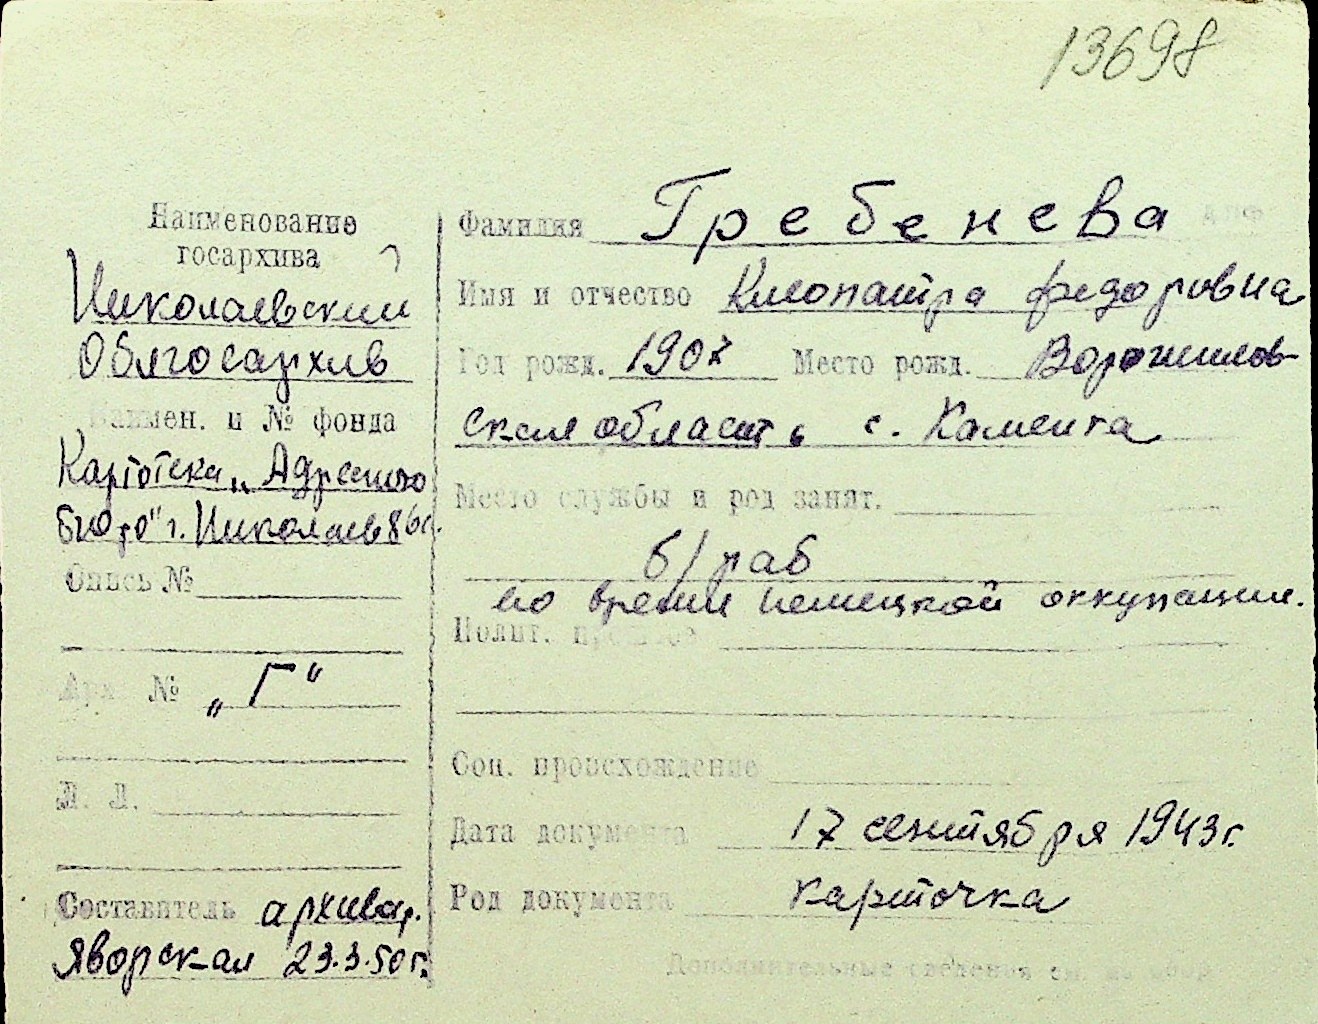 13698
Наименование
госархива
Николаевский
Облгосархив
Наимен. и № фонда
Картотека „Адресного
бюро" г. Николаев
Опись №
Арх. № „Г"
Л. Л.
Составитель архивар.
Яворская 23.3.50г.
Фамилия Гребенева
Имя и отчество Клеопатра Федоровна
Год рожд. 1907 Место рожд. Ворошилов-
ская область с. Каменка
Место службы и род занят.
б/раб
во время немецкой оккупации.
Полит. прошлое
Соц. происхождение
Дата документа 17 сентября 1943г.
Род документа карточка
Дополнительные сведения см. на обор